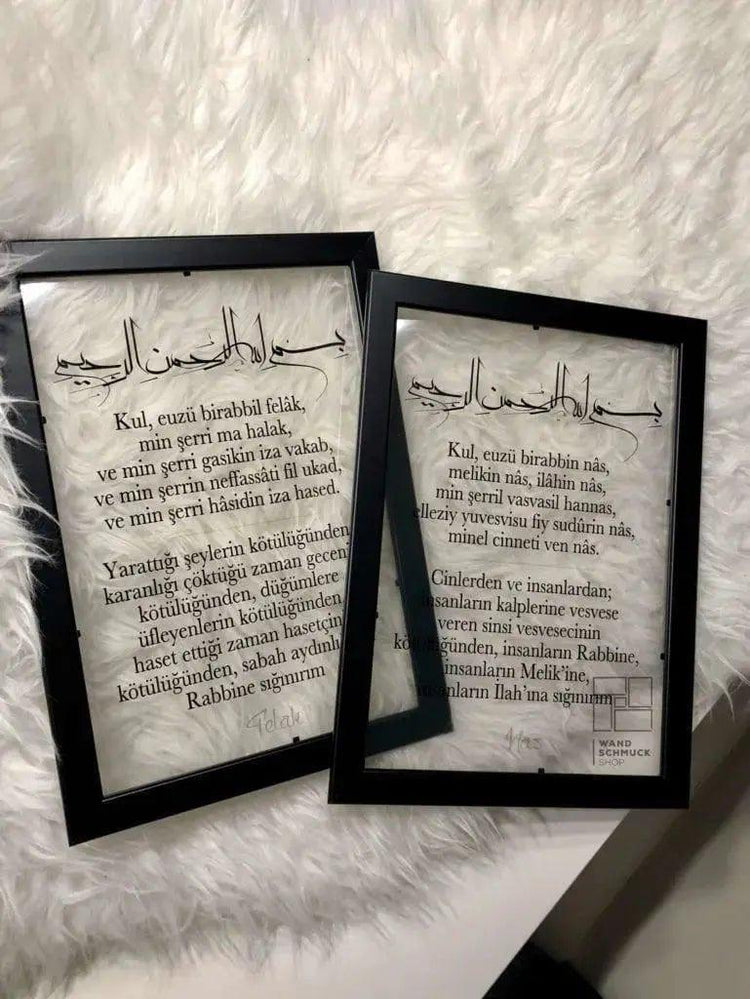 بسم الله الرحمن الرحيم
Kul, euzü birabbil felâk,
min şerri ma halak,
ve min şerri gasikin iza vakab,
ve min şerrin neffassâti fil ukad,
ve min şerri hâsidin iza hased.
Yarattığı şeylerin kötülüğünden
karanlığı çöktüğü zaman gecen
kötülüğünden, düğümlere
üfleyenlerin kötülüğünden
haset ettiği zaman hasetçin
kötülüğünden, sabah aydınlı
Rabbine sığınırım
Felak
بسم الله الرحمن الرحيم
Kul, euzü birabbin nâs,
melikin nâs, ilâhin nâs,
min şerril vasvasil hannas,
elleziy yuvesvisu fiy sudûrin nâs,
minel cinneti ven nâs.
Cinlerden ve insanlardan;
insanların kalplerine vesvese
veren sinsi vesvesecinin
kötülüğünden, insanların Rabbine,
insanların Melik'ine,
insanların İlah'ına sığınırım
Nas
WAND
SCHMUCK
SHOP